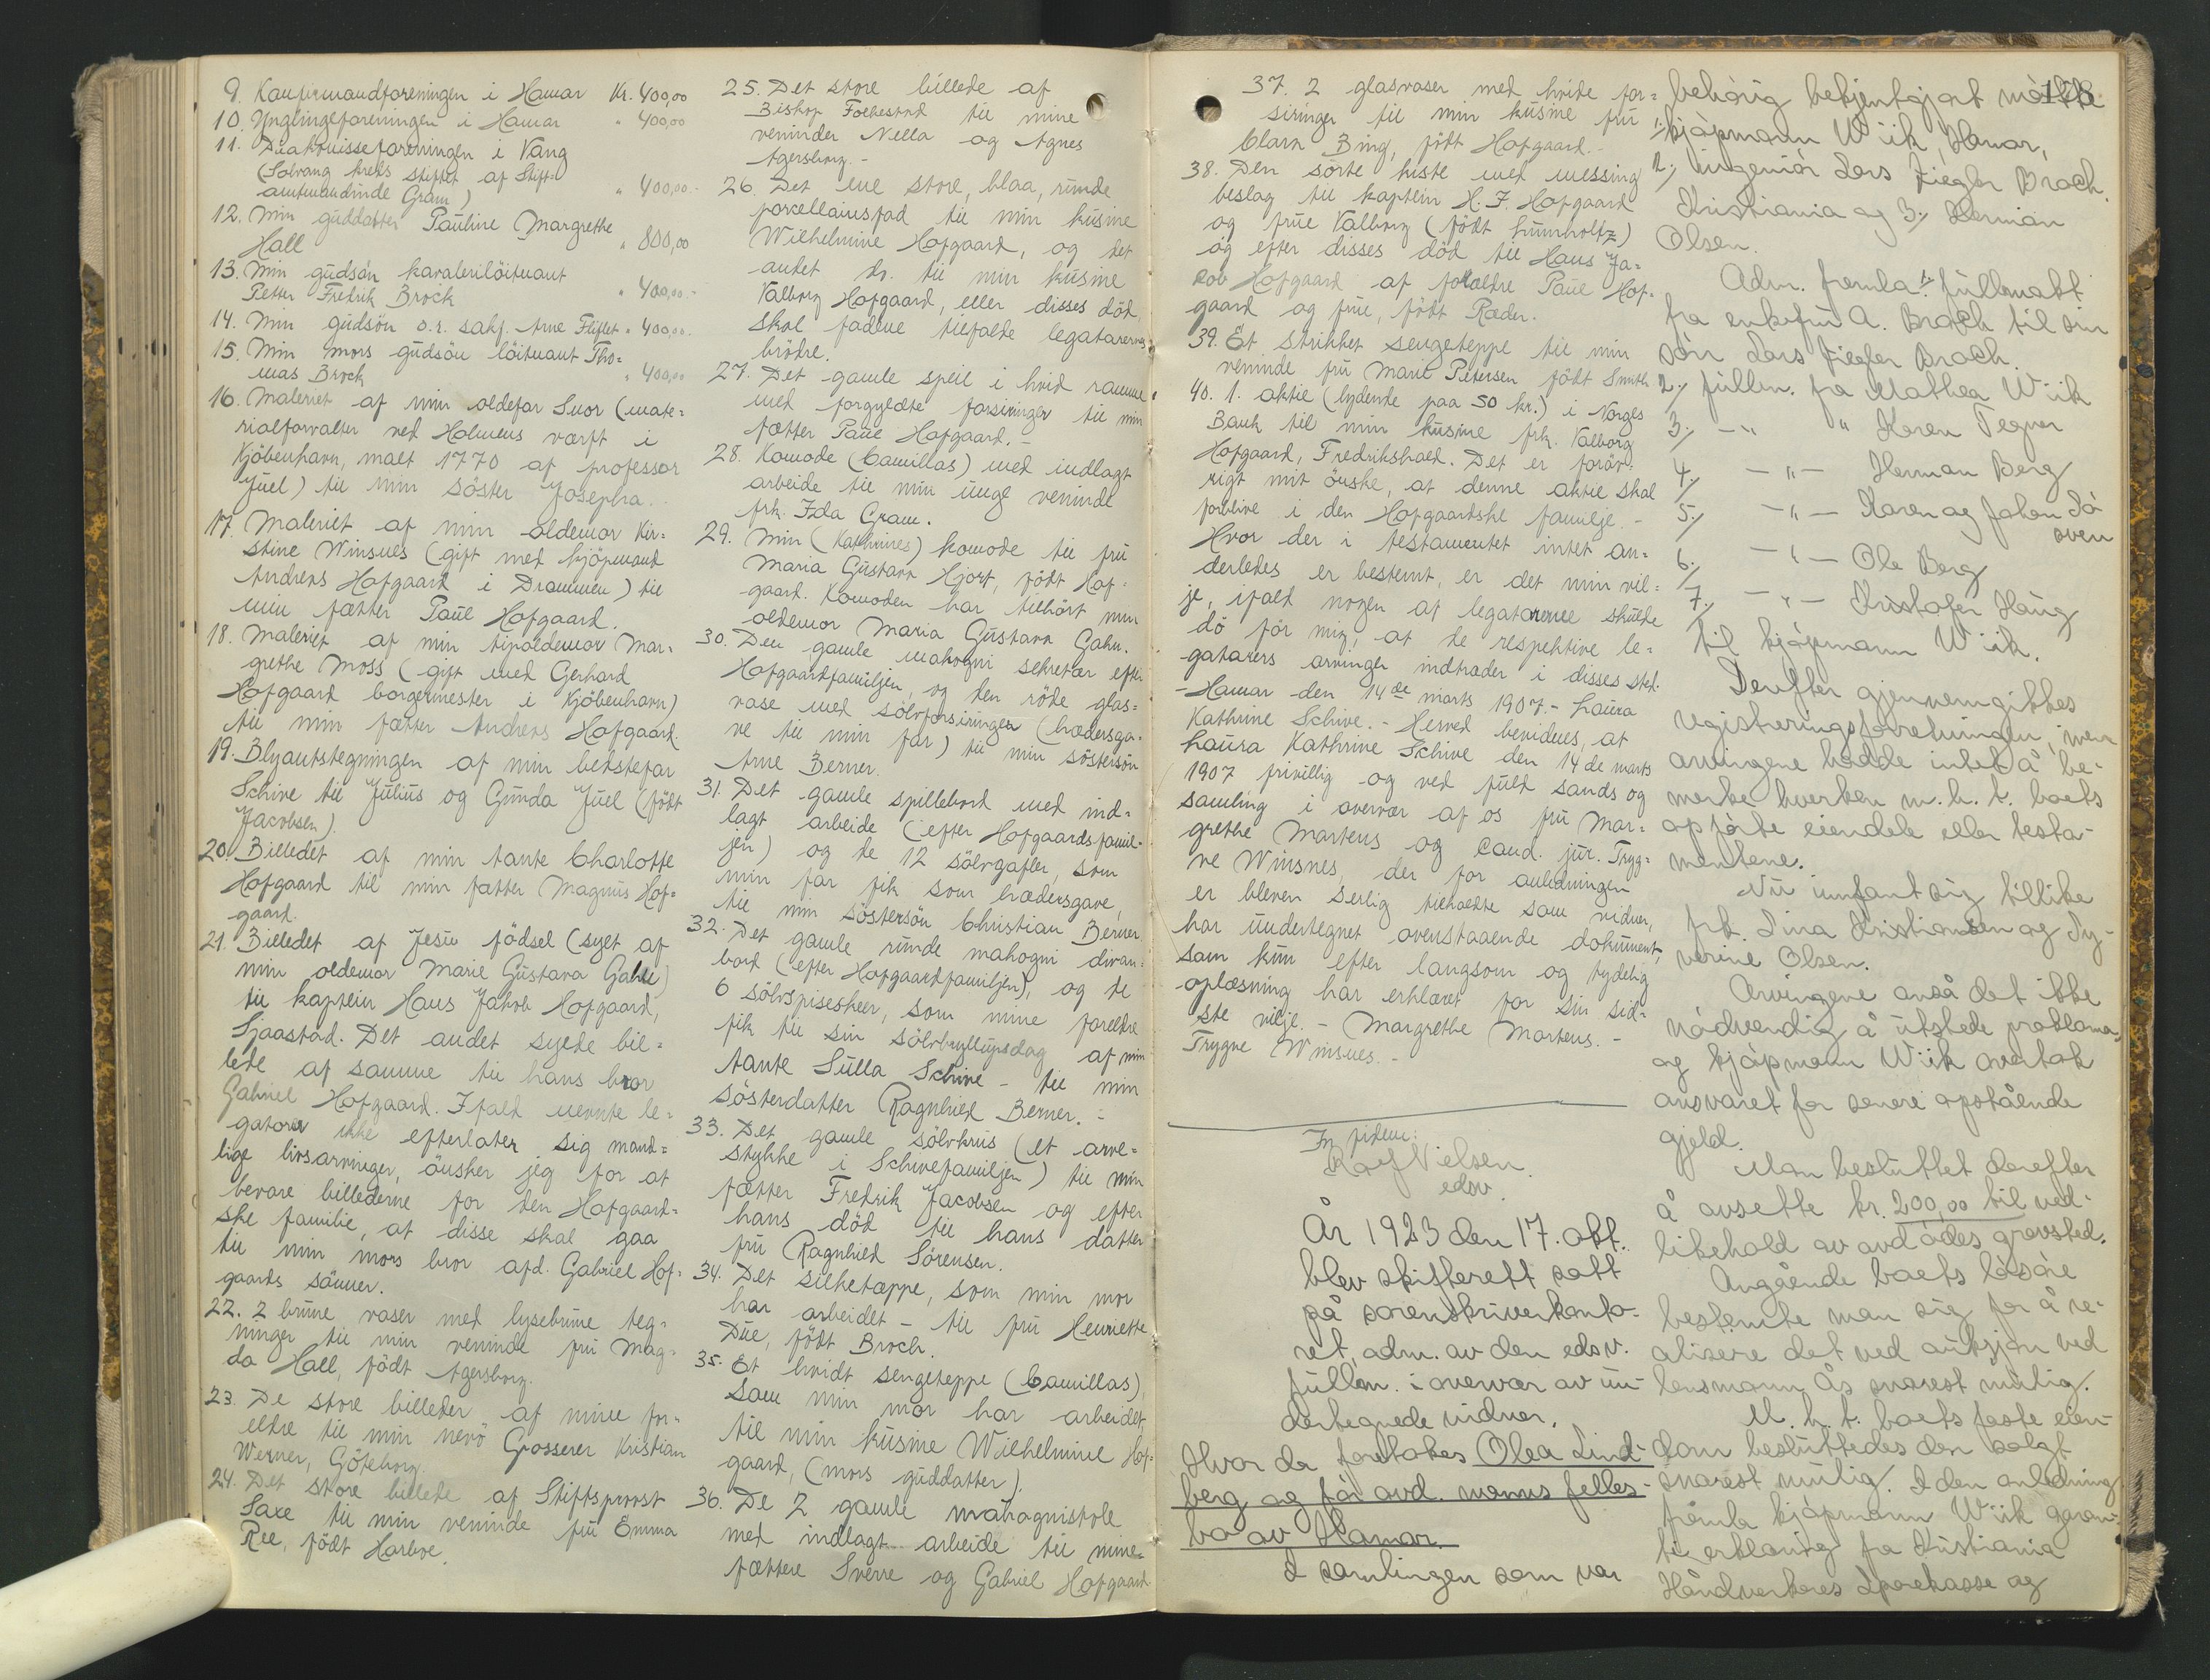 9. Kaufmandforeningen i Hamar Kr. 400,00
10. Ynglingeforeningen i Hamar " 400,00
11. Diakonisseforeningen i Vang
(Solvang kreds stiftet af Stift=
amtmandinde Gram) " 400,00.-
12. Min guddatter Pauline Margrethe
Hall " 800,00
13. Min gudsøn kavaleriløitnant
Petter Fredrik Brock " 400,00.-
14. Min gudsön o.r. sakf. Arne Fliflet " 400,00.
15. Min mors gudsön löitnant Tho=
mas Brock " 400,00
16. Maleriet af min oldefar Suor (mate=
rialforvalter ved Holmens værft i
Kjöbenhavn, malt 1770 af professor
Juel) til min söster Josepha.
17. Maleriet af min oldemor Kir=
stine Winsnes (gift med kjöpmand
Andreas Hofgaard i Drammen) til
min fætter Paul Hofgaard.
18. Maleriet af min tipoldemor Mar=
grethe Moss (gift med Gerhard
Hofgaard borgermester i Kjöbenhavn)
til min fætter Andreas Hofgaard.
19. Blyantstegningen af min bedstefar
Schive til Julius og Gunda Juel (født
Jacobsen).
20. Billedet af min tante Charlotte
Hofgaard til min fætter Magnus Hof=
gaard.
21. Billedet af Jesu födsel (syet af
min oldemor Marie Gustava Gahn)
til kaptein Hans Jakob Hofgaard,
Sjaastad. Det andet syede bil=
lede af samme til hans bror
Gabriel Hofgaard. Ifald nevnte le=
gatorer ikke efterlater sig mand=
lige livsarvinger, önsker jeg for at
bevare billederne for den Hofgaard=
ske familie, at disse skal gaa
til min mors bror afd. Gabriel Hof=
gaards sönner.
22. 2 brune vaser med lysebrune teg=
ninger til min veninde fru Mag=
da Hall, födt Agersborg.
23. De store billeder af mine for=
eldre til min nevö Grosserer Kristian
Werner, Göteborg.
24. Det store billede af Stiftsprovst
Saxe til min veninde fru Emma
Ree, födt Harbve.
25. Det store billede af
Biskop Folkestad til mine
veninder Nella og Agnes
Agersborg.-
26. Det ene store, blaa, runde
porcellainsfad til min kusine
Wilhelmine Hofgaard, og det
andet do. til min kusine
Valborg Hofgaard, eller disses död
skal fadene tilfalde legatarernes
brödre.
27. Det gamle speil i hvid ramme
med forgyldte forsiringer til min
fætter Paul Hofgaard.-
28. Komode (Camillas) med indlagt
arbeide til min unge veninde
frk. Ida Gram.
29. Min (Kathrines) komode til fru
Maria Gustava Hjort, födt Hof=
gaard. Komoden har tilhört min
oldemor Maria Gustava Gahn.
30. Den gamle mahogni sekretær efter
Hofgaardfamiljen, og den röde glas=
vase med sölvforsiringer (hædersga=
ve til min far) til min söstersön
Arne Berner.
31. Det gamle spillebord med ind=
lagt arbeide (efter Hofgaardsfamil=
jen) og de 12 sölvgafler, som
min far fik som hædersgave,
til min söstersön Christian Berner.
32. Det gamle runde mahogni divan=
bord (efter Hofgaardfamiljen), og de
6 sölvspiseskeer, som mine foreldre
fik til sin sölvbryllupsdag af min
tante Sulla Schive - til min
sösterdatter Ragnhild Berner.-
33. Det gamle sölvkrus (et arve=
stykke i Schivefamiljen) til min
fætter Fredrik Jacobsen og efter
hans död til hans datter
fru Ragnhild Sörensen.
34. Det silketæppe, som min mor
har arbeidet - til fru Henriette
Due, födt Broch.
35. Et hvidt sengeteppe (Camillas),
som min mor har arbeidet
til min kusine Wilhelmine Hof=
gaard, (mors guddatter).
36. De 2 gamle mahognistole
med indlagt arbeide til mine
fættere Sverre og Gabriel Hofgaard
37. 2 glasvaser med hvide for=
siringer til min kusine fru
Clara Bing, födt Hofgaard.-
38. Den sorte kiste med messing
beslag til kaptein H. J. Hofgaard
og frue Valborg (födt Lumholtz)
og efter disses död til Hans Ja=
kob Hofgaard af foreldre Paul Hof=
gaard og frue, födt Ræder.
39. Et strikket sengeteppe til min
veninde fru Marie Petersen födt Smith
40. 1. aktie (lydende paa 50 kr.) i Norges
Bank til min kusine frk. Valborg
Hofgaard, Fredrikshald. Det er foröv=
rigt mit önske, at denne aktie skal
forblive i den Hofgaardske familje.-
Hvor der i testamentet intet an=
derledes er bestemt, er det min vil=
je, ifald nogen af legatorerne skulde
dö för mig, at de respektive le=
gatarers arvinger indtræder i disses sted.
-Hamar den 14de marts 1907.- Laura
Kathrine Schive.- Herved bevidnes, at
Laura Kathrine Schive den 14de marts
1907 frivillig og ved fuld sands og
samling i overvær af os fru Mar=
grethe Martens og cand. jur. Tryg=
ve Winsnes, der for anledningen
er bleven særlig tilkaldte som vidner,
har undertegnet ovenstaaende dokument,
som hun efter langsom og tydelig
oplæsning har erklæret for sin sid=
ste vilje.- Margrethe Martens.-
Trygve Winsnes.-
In fidem:
Rolf Nielsen.
edsv.
År 1923 den 17. okt.
blev skifterett satt
på sorenskriverkonto-
ret, adm. av den edsv.
fullm. i overvær av un-
dertegnede vidner.
Hvor da foretokes Olea Lind-
berg og før avd. manns felles-
bo av Hamar.
I samlingen som var
128.
behørig bekjentgjort møtte
1/ kjøpmann Wiik, Hamar,
2/ ingeniør Lars Ziegler Broch,
Kristiania og 3/ Herman
Olsen.
Adm. fremla 1/ fullmakt
fra enkefru A. Broch til sin
søn Lars Ziegler Broch.
2/ fullm. fra Mathea Wiik
3/ -"- " Karen Tegner
4/ -"- Herman Berg
5/ -"- Karen og Johan Sö
oven
6/ -"- Ole Berg
7/ -"- Kristofer Haug
til kjøpmann Wiik.
Derefter gjennemgikkes
registreringsforretningen, men
arvingene hadde intet å be-
merke hverken m.h.t. boets
opførte eiendele eller testa-
mentene.
Nu innfant sig tillike
frk. Lina Kristiansen og Sy-
verine Olsen.
Arvingene anså det ikke
nødvendig å utstede proklama,
og kjøpmann Wiik overtok
ansvaret for senere opstående
gjeld.
Man besluttet derefter
å avsette kr. 200,00 til ved-
likehold av avdødes gravsted.
Angående boets løsøre
bestemte man sig for å re-
alisere det ved auksjon ved
lensmann Ås snarest mulig.
M.h.t. boets faste eien-
dom besluttedes den solgt
snarest mulig. I den anledning
fremla kjøpmann Wiik garan-
tierklæring fra Kristiania
Håndverkeres Sparekasse og